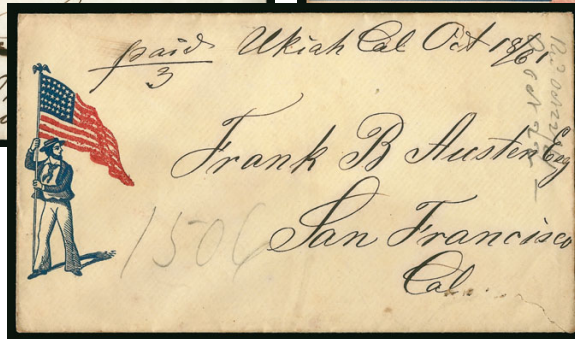 paid Ukiah Cal Oct 18/61
3
Frank B Austen Esq
San Francisco
Cal.
1506